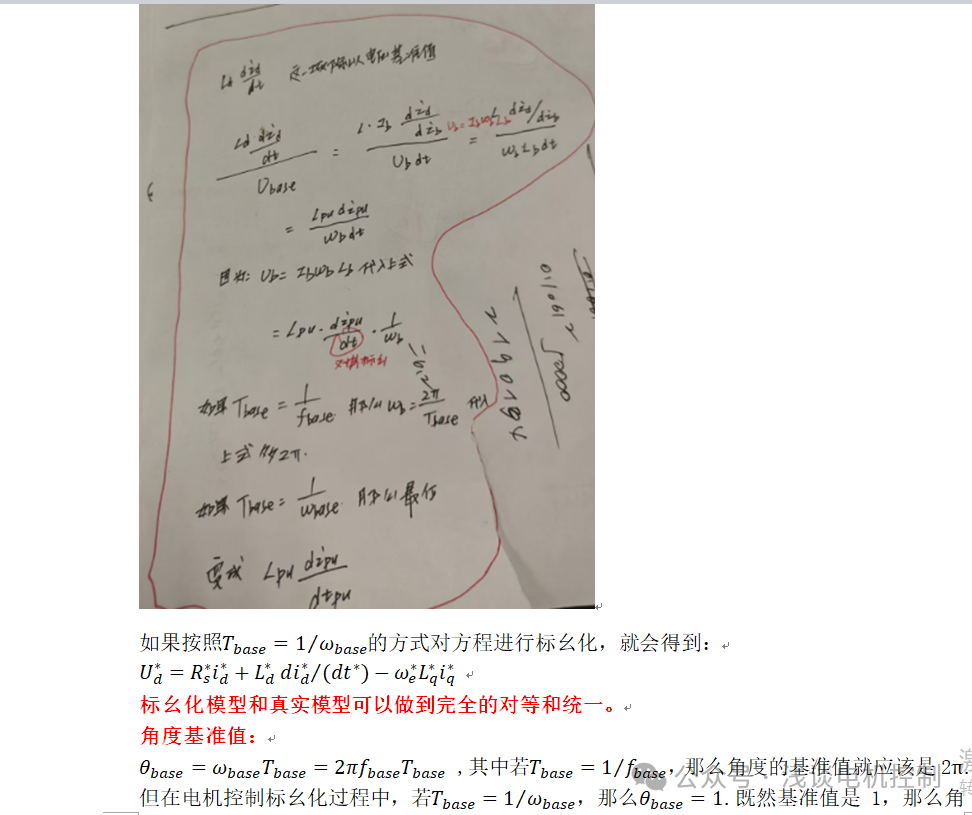 Ld did/dt 这一项除以电压基准值
Ld did/dt / Ubase = L·Ib did/dib / Ub dt Ub=IbωbLb = L did/dib / ωb Lb dt
= Lpu dipu / ωb dt
因为: Ub = Ibωb Lb 代入上式
= Lpu · dipu/dt · 1/ωb
对其标幺
如果 Tbase = 1/fbase 那么 ωb = 2π/Tbase 所以
上式多2π.
如果 Tbase = 1/ωbase 那么最佳
变成 Lpu dipu/dtpu
如果按照T_base = 1/ω_base的方式对方程进行标幺化，就会得到：
U_d^* = R_s^* i_d^* + L_d^* di_d^*/(dt^*) − ω_e^* L_q^* i_q^*
标幺化模型和真实模型可以做到完全的对等和统一。
角度基准值：
θ_base = ω_base T_base = 2πf_base T_base ，其中若T_base = 1/f_base，那么角度的基准值就应该是 2π.
但在电机控制标幺化过程中，若T_base = 1/ω_base，那么θ_base = 1. 既然基准值是 1，那么角
公众号 · 浅谈电机控制